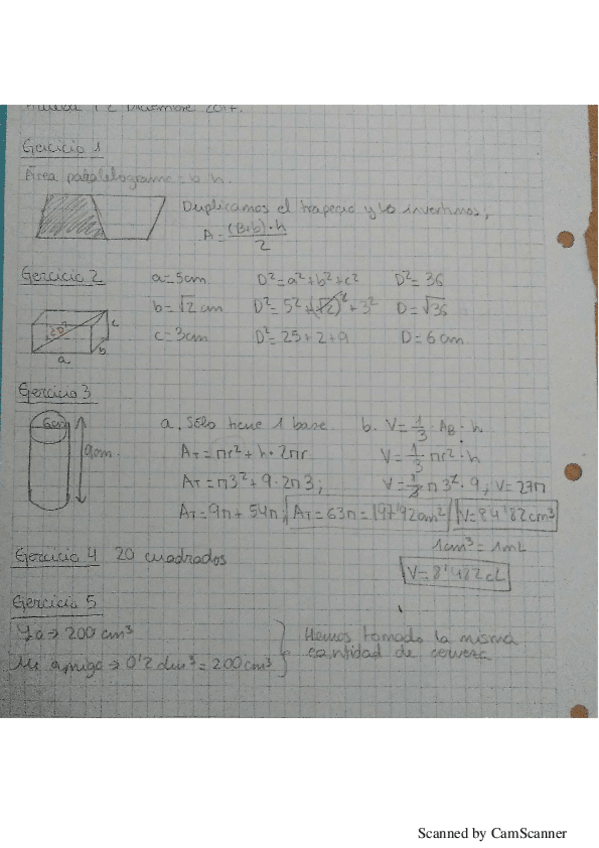 12 Diciembre 2017.
Ejercicio 1
Área paralelogramo = b·h.
Duplicamos el trapecio y lo invertimos,
A = (B+b)·h / 2
Ejercicio 2
a = 5cm   D² = a² + b² + c²   D² = 36
b = √2 cm   D² = 5² + (√2)² + 3²   D = √36
c = 3cm   D² = 25 + 2 + 9   D = 6 cm
c
b
a
Ejercicio 3
6cm
9cm
a. Sólo tiene 1 base   b. V = 1/3 · A_B · h
A_T = πr² + h·2πr   V = 1/3 πr²·h
A_T = π3² + 9·2π3;   V = 1/3 π3²·9, V = 27π
A_T = 9π + 54π, A_T = 63π = 197'92cm²   V = 84'82cm³
1cm³ = 1mL
V = 8'482cL
Ejercicio 4   20 cuadrados
Ejercicio 5
Yo → 200cm³
Mi amigo → 0'2 dm³ = 200cm³
Hemos tomado la misma
cantidad de cerveza
Scanned by CamScanner